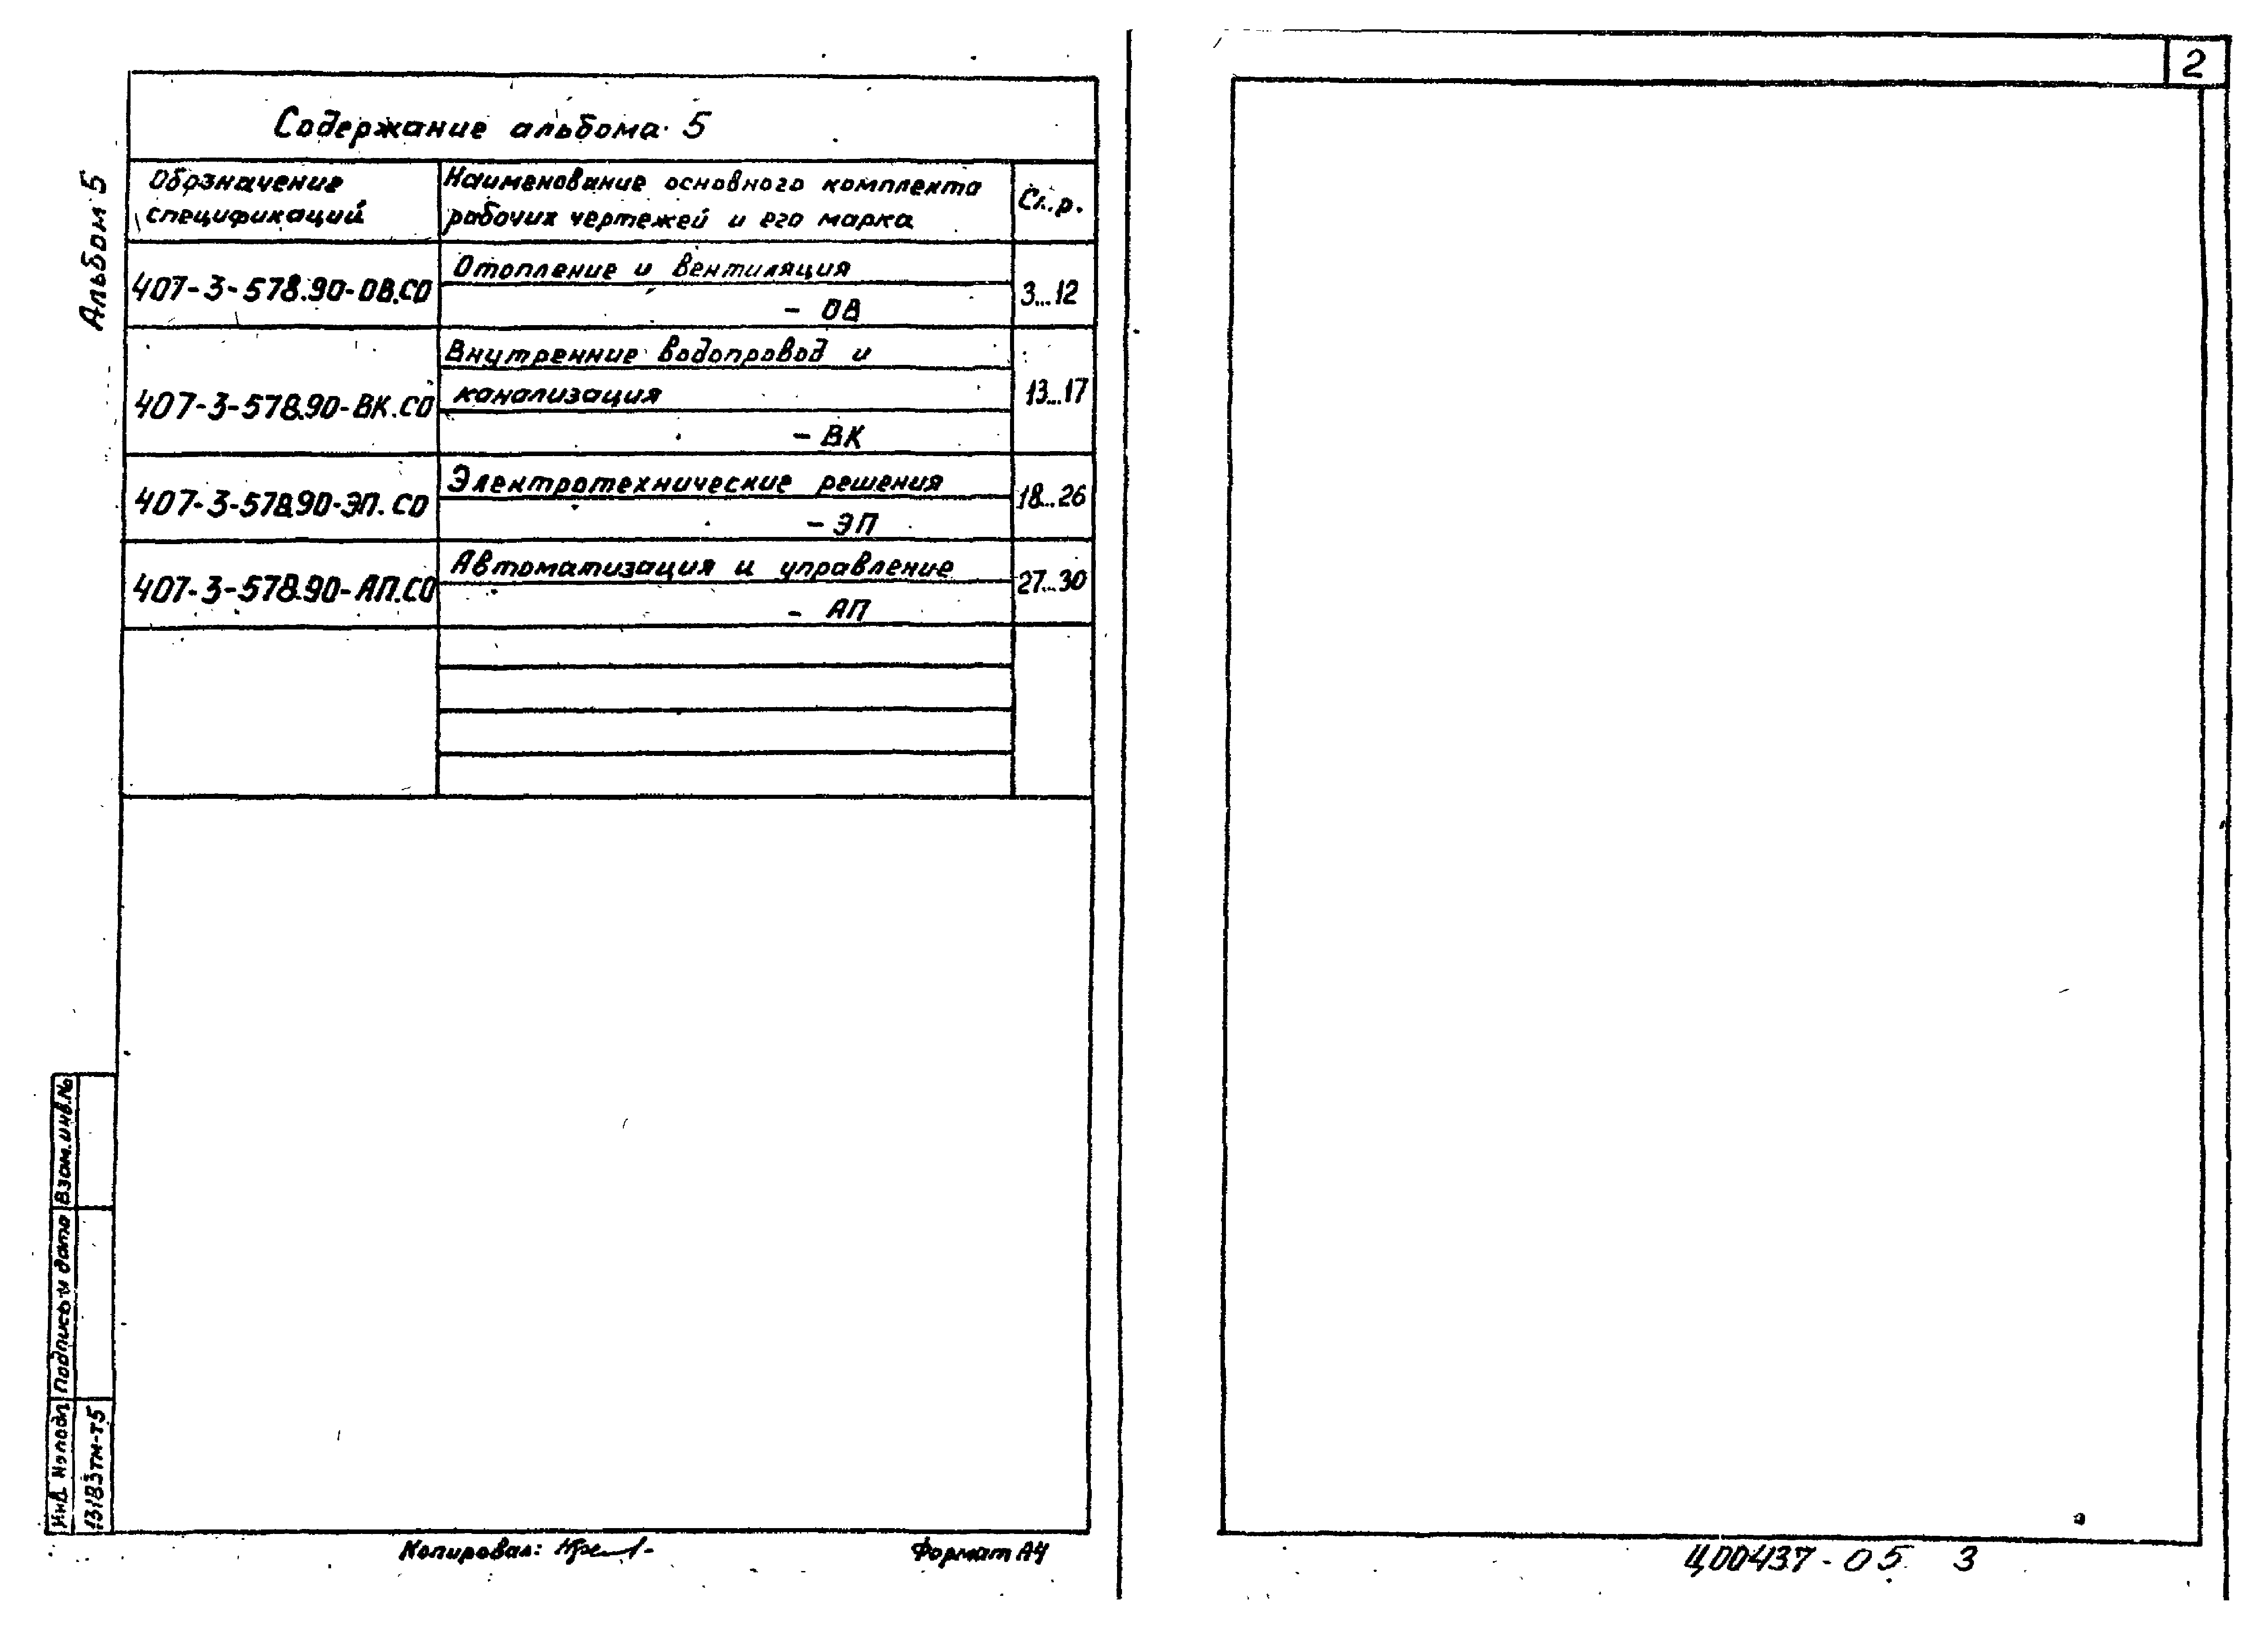 Содержание альбома 5
Обозначение
спецификаций
Наименование основного комплекта
рабочих чертежей и его марка
Стр.
407-3-578.90-ОВ.СО
Отопление и вентиляция
- ОВ
3...12
407-3-578.90-ВК.СО
Внутренние водопровод и
канализация
- ВК
13...17
407-3-578.90-ЭП.СО
Электротехнические решения
- ЭП
18...26
407-3-578.90-АП.СО
Автоматизация и управление
- АП
27...30
Альбом 5
Взам.инв.№
Подпись и дата
Инв. № подл.
13183тм-т5
Копировал:
Формат А4
2
Ц00437-05 3